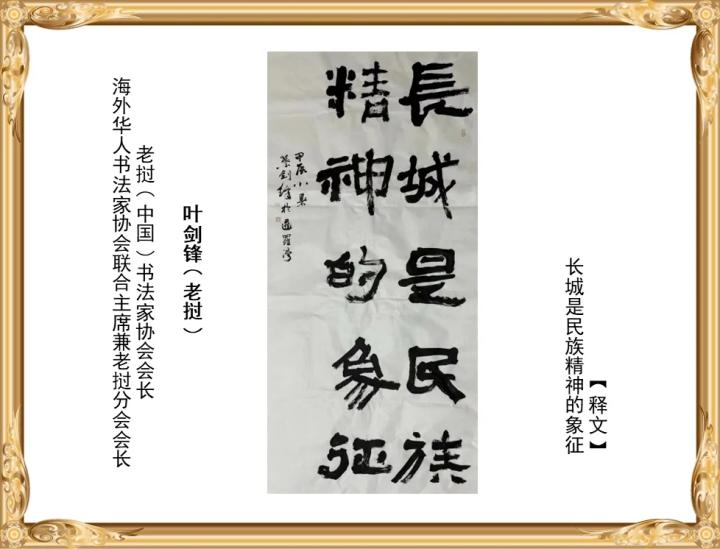 【释文】
长城是民族精神的象征
長城是民族
精神的象征
甲辰小暑
叶剑锋（老挝）
老挝（中国）书法家协会会长
海外华人书法家协会联合主席兼老挝分会会长